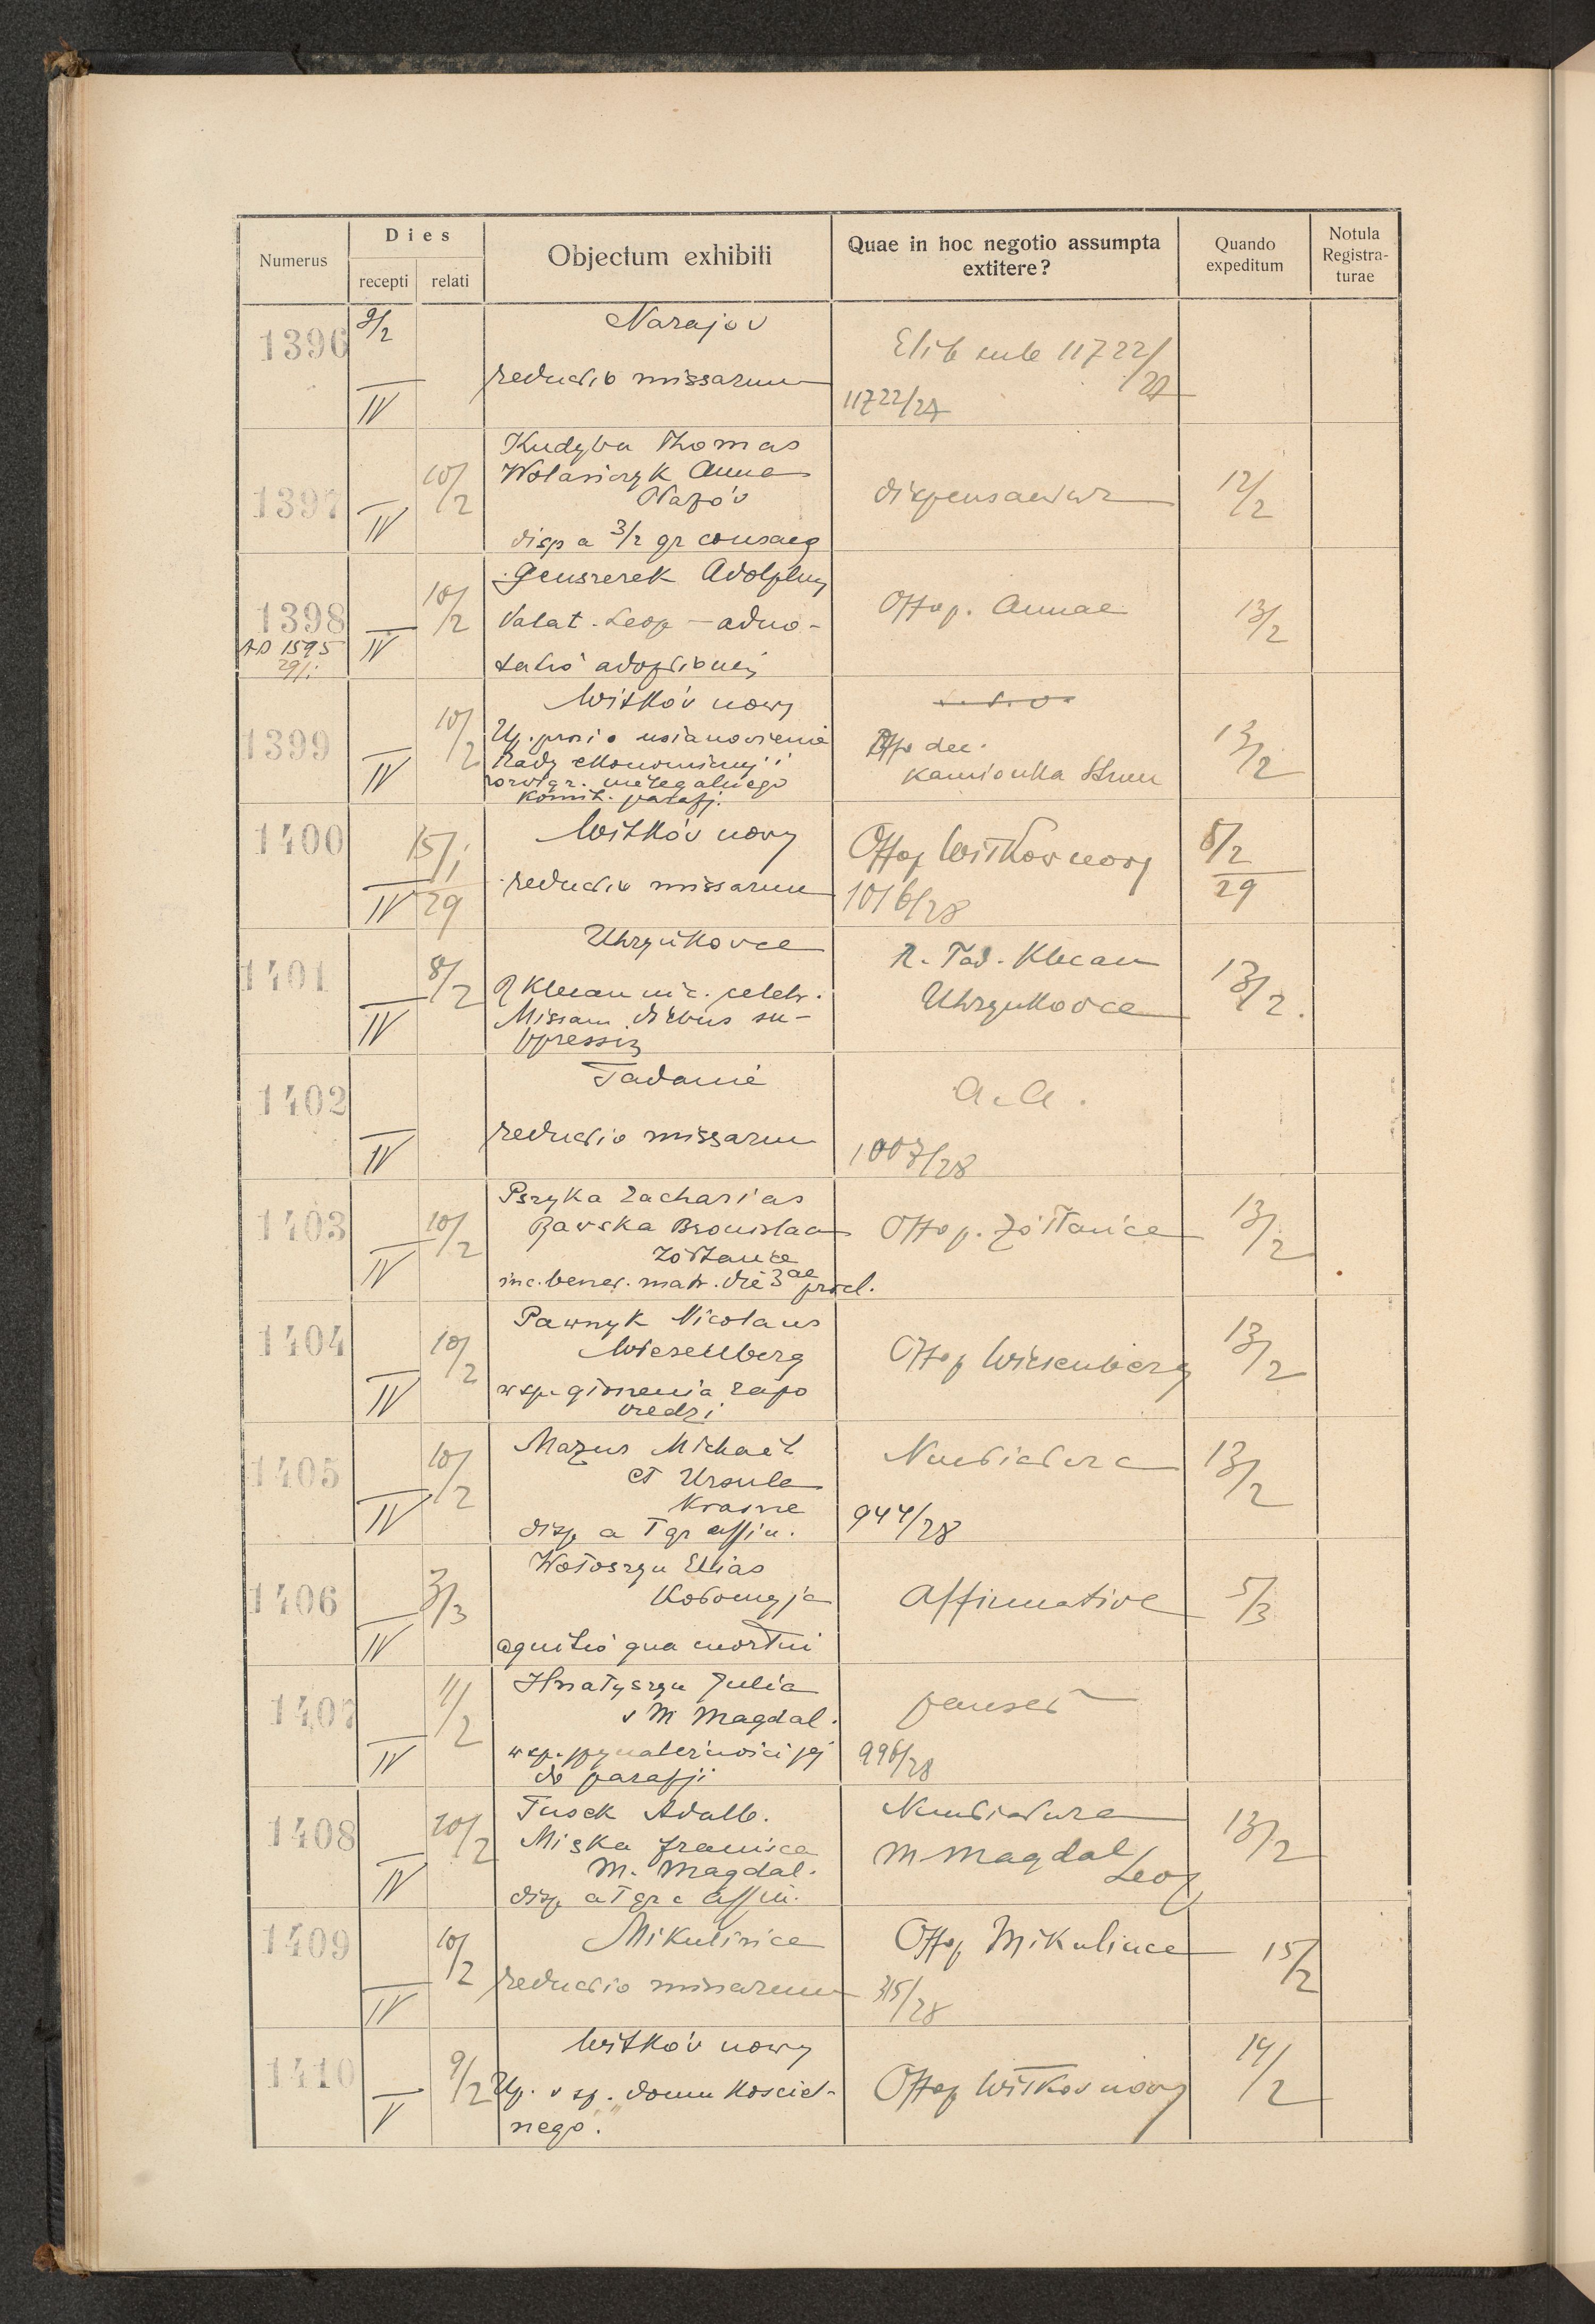 Numerus
Dies
recepti
relati
Objectum exhibiti
Quae in hoc negotio assumpta
extitere?
Quando
expeditum
Notula
Registra-
turae
1396
9/2
IV
Narajov
reductio missarum
Elib sub 11722/
/27
11722/27
1397
IV
10/2
Kudyba Thomas
Anna
disp a 3/2 gr consang
dispensantur
12/2
1398
AD 1595
29/i
IV
10/2
Adolphus
Leop - adno-
tatio adoptionis
Off op. Annae
13/2
1399
IV
10/2
Witków nowy
Up. prosi o ustanowienie
Rady ekonomicznej i
rozwiąz. nielegalnego
Komit. parafj.
Offo dec.
Kamionka Strum
13/2
1400
IV
15/i
29
Witków nowy
reductio missarum
Offop Witkow nowy
1016/28
8/2
29
1401
IV
8/2
Uhrynkovce
Missam diebus su-
ppressis
R. Tad.
Uhrynkovce
13/2.
1402
IV
Tadanie
reductio missarum
a.a.
1007/28
1403
IV
10/2
Pszyka Zacharias
Bronislaa
Żółtańce
inc. bened. matr. die 3ae procl.
Off op. Żółtańce
13/2
1404
IV
10/2
Pawnyk Nicolaus
Wiesenberg
w sp. głoszenia zapo
wiedzi
Off op Wiesenberg
13/2
1405
IV
10/2
Mazur Michaël
et Ursula
Krasne
disp a I gr affin.
Nuntiatura
944/28
13/2
1406
IV
3/3
Wołoszyn Elias
Kołomyja
agnitio qua mortui
Affirmative
5/3
1407
IV
11/2
Hnatyszyn Julia
v M Magdal.
w sp. przynależności jej
do parafji
panset
996/28
1408
IV
10/2
Tusek Adalb.
Miska Franisca
M. Magdal.
disp a I gr affin.
Nuntiatura
M Magdal
Leop
13/2
1409
IV
10/2
Mikulińce
reductio missarum
Offop Mikulince
315/28
15/2
1410
V
9/2
Witków nowy
Up. v sp. domu Kościel-
nego.
Offop Witkow nowy
14/2